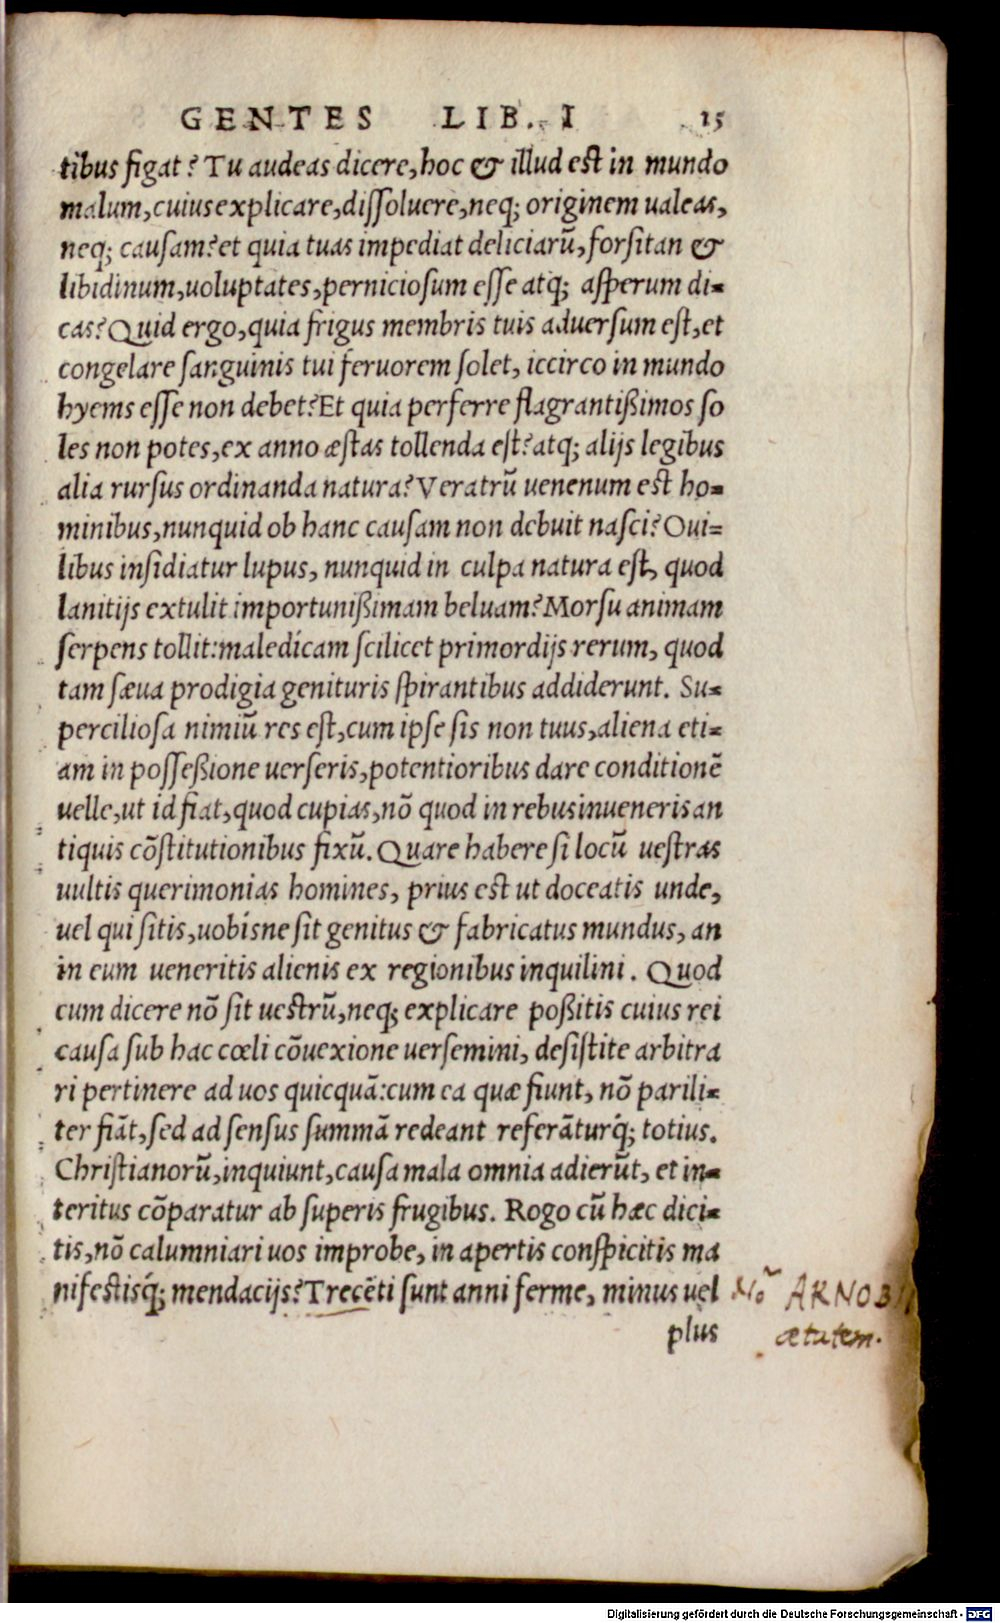 GENTES LIB. I 15
tibus figat? Tu audeas dicere, hoc & illud est in mundo
malum, cuius explicare, dissoluere, neq; originem ualeas,
neq; causam? et quia tuas impediat deliciarū, forsitan &
libidinum, uoluptates, perniciosum esse atq; asperum di-
cas? Quid ergo, quia frigus membris tuis aduersum est, et
congelare sanguinis tui feruorem solet, iccirco in mundo
hyems esse non debet? Et quia perferre flagrantißimos so
les non potes, ex anno æstas tollenda est? atq; alijs legibus
alia rursus ordinanda natura? Veratrū uenenum est ho-
minibus, nunquid ob hanc causam non debuit nasci? Oui-
libus insidiatur lupus, nunquid in culpa natura est, quod
lanitijs extulit importunißimam beluam? Morsu animam
serpens tollit: maledicam scilicet primordijs rerum, quod
tam sæua prodigia genituris spirantibus addiderunt. Su-
perciliosa nimiū res est, cum ipse sis non tuus, aliena eti-
am in posseßione uerseris, potentioribus dare conditionē
uelle, ut id fiat, quod cupias, nō quod in rebus inueneris an
tiquis cōstitutionibus fixū. Quare habere si locū uestras
uultis querimonias homines, prius est ut doceatis unde,
uel qui sitis, uobisne sit genitus & fabricatus mundus, an
in eum ueneritis alienis ex regionibus inquilini. Quod
cum dicere nō sit uestrū, neq; explicare poßitis cuius rei
causa sub hac cœli cōuexione uersemini, desistite arbitra
ri pertinere ad uos quicquā: cum ea quæ fiunt, nō parili-
ter fiāt, sed ad sensus summā redeant referāturq́; totius.
Christianorū, inquiunt, causa mala omnia adierūt, et in-
teritus cōparatur ab superis frugibus. Rogo cū hæc dici-
tis, nō calumniari uos improbe, in apertis conspicitis ma
nifestisq́; mendacijs? Trecēti sunt anni ferme, minus uel
plus
No ARNOBII
ætatem.
Digitalisierung gefördert durch die Deutsche Forschungsgemeinschaft - DFG